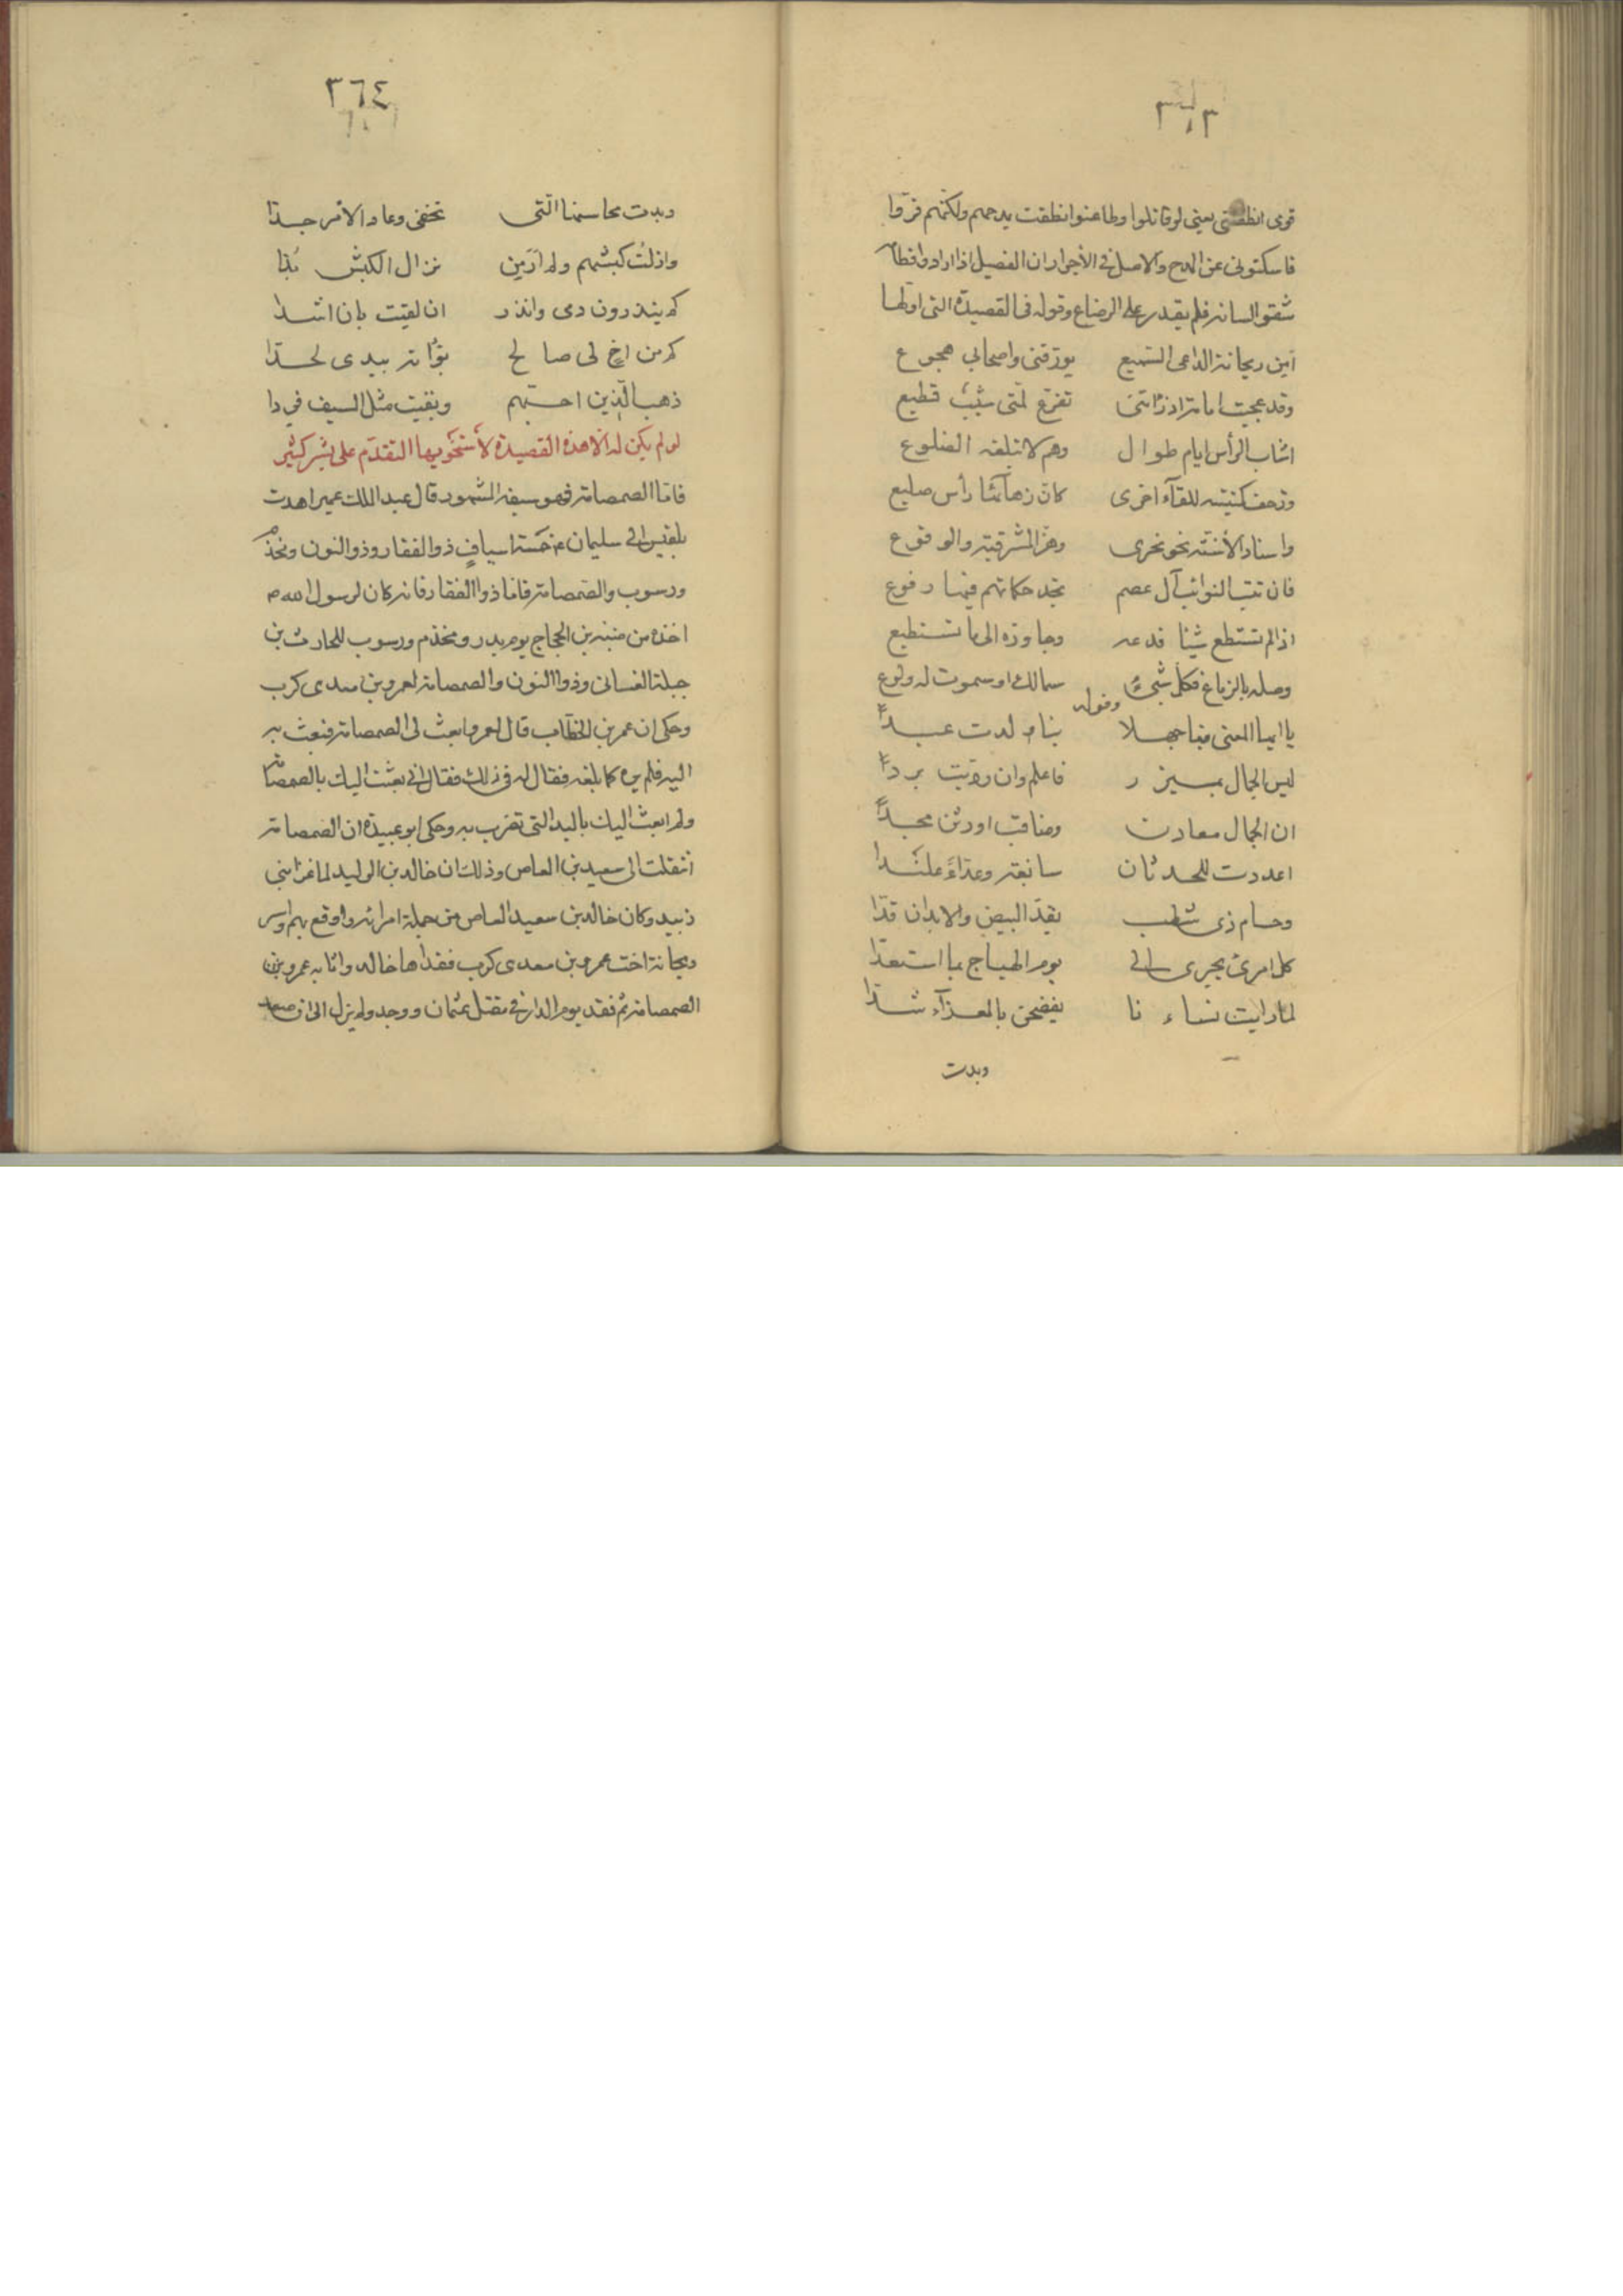 ٣٦٣
قومى انطقتنى يعنى لو قاتلوا وطاعنوا انطقت بمدحهم ولكنّهم فرّوا
فاسكتونى عن المدح والاصل فى الأجرار ان الفصيل اذا ارادوا فطامه
شقوا لسانه فلم يقدر على الرضاع وقوله فى القصيدة التى اولها
أمن ريحانة الداعى السّميع يورّقنى واصحابى هجوع
وقد عجبت امامة اذ رأتنى تفرّع لمّتى شيب قطيع
اشاب الرأس ايام طوال وهم لا تبلغه الضلوع
وزحف كتيبة للقآء اخرى كانّ زهآئها رأس صليع
واسناد الأسنّة نحو نحرى وهزّ المشرقية والوقوع
فان تنب النوائب آل عصم تجد حكاتهم فيها رفوع
اذا لم تستطع شيئا فدعه وجاوزه الى ما تستطيع
وصله بالزماع فكل شئ سمالك او سموت له ولوع
وقوله
يا ايها المعنى مفاجهلا بنا ولدت عبداً
ليس الجمال بميزر فاعلم وان رديت برداً
ان الجمال معادن ومناقب اورثن مجداً
اعددت للحدثان سابغة وعدّاءً علندا
وحسام ذى شطب يقدّ البيض والابدان قدّا
كل امرئ يجرى الى يوم الهياج بما استعدّا
لما رايت نساءنا يفحصن بالمعزآء شدّا
وبدت
٣٦٤
وبدت محاسنها الّتى تخفى وعاد الأمر جدّا
ونازلت كبشهم ولم أر من نزال الكبش بُدّا
كم ينذرون دمى وانذر ان لقيت بان اشدا
كم من اخٍ لى صالح بوّأته بيدى لحدّا
ذهب الّذين احبّهم وبقيت مثل السيف فردا
لو لم يكن له الا هذه القصيدة لأستحقّ بها التقدّم على بشر كثير
فامّا الصمصامة فهو سيفه المشهور قال عبد الملك بن عمير اهدت
بلقيس الى سليمان ع خمسة اسيافٍ ذو الفقار وذو النون ومخذم
ورسوب والصّمصامة فامّا ذوا الفقار فانه كان لرسول الله ص
اخذه من منبّه بن الحجاج يوم بدر ومخذم ورسوب للحارث بن
جبلة الغسانى وذوا النون والصمصامة لعمرو بن معدى كرب
وحكى ان عمر بن الخطّاب قال لعمرو ابعث لى الصمصامة فبعث به
اليه فلم يره كما بلغه فقال له فى ذلك فقال انى بعثت اليك بالصمصامة
ولم ابعث اليك باليد التى تضرب به وحكى ابو عبيدة ان الصمصامة
انتقلت الى سعيد بن العاص وذلك ان خالد بن الوليد لما غزا بنى
زبيد وكان خالد بن سعيد العاص من جملة امرائه واوقع بهم اوسر
ريحانة اخت عمرو بن معدى كرب ففداها خالد واثابه عمرو بن
الصمصامة ثم فقد يوم الدار فى مقتل عثمان ووجد ولم يزل الى ان صعد